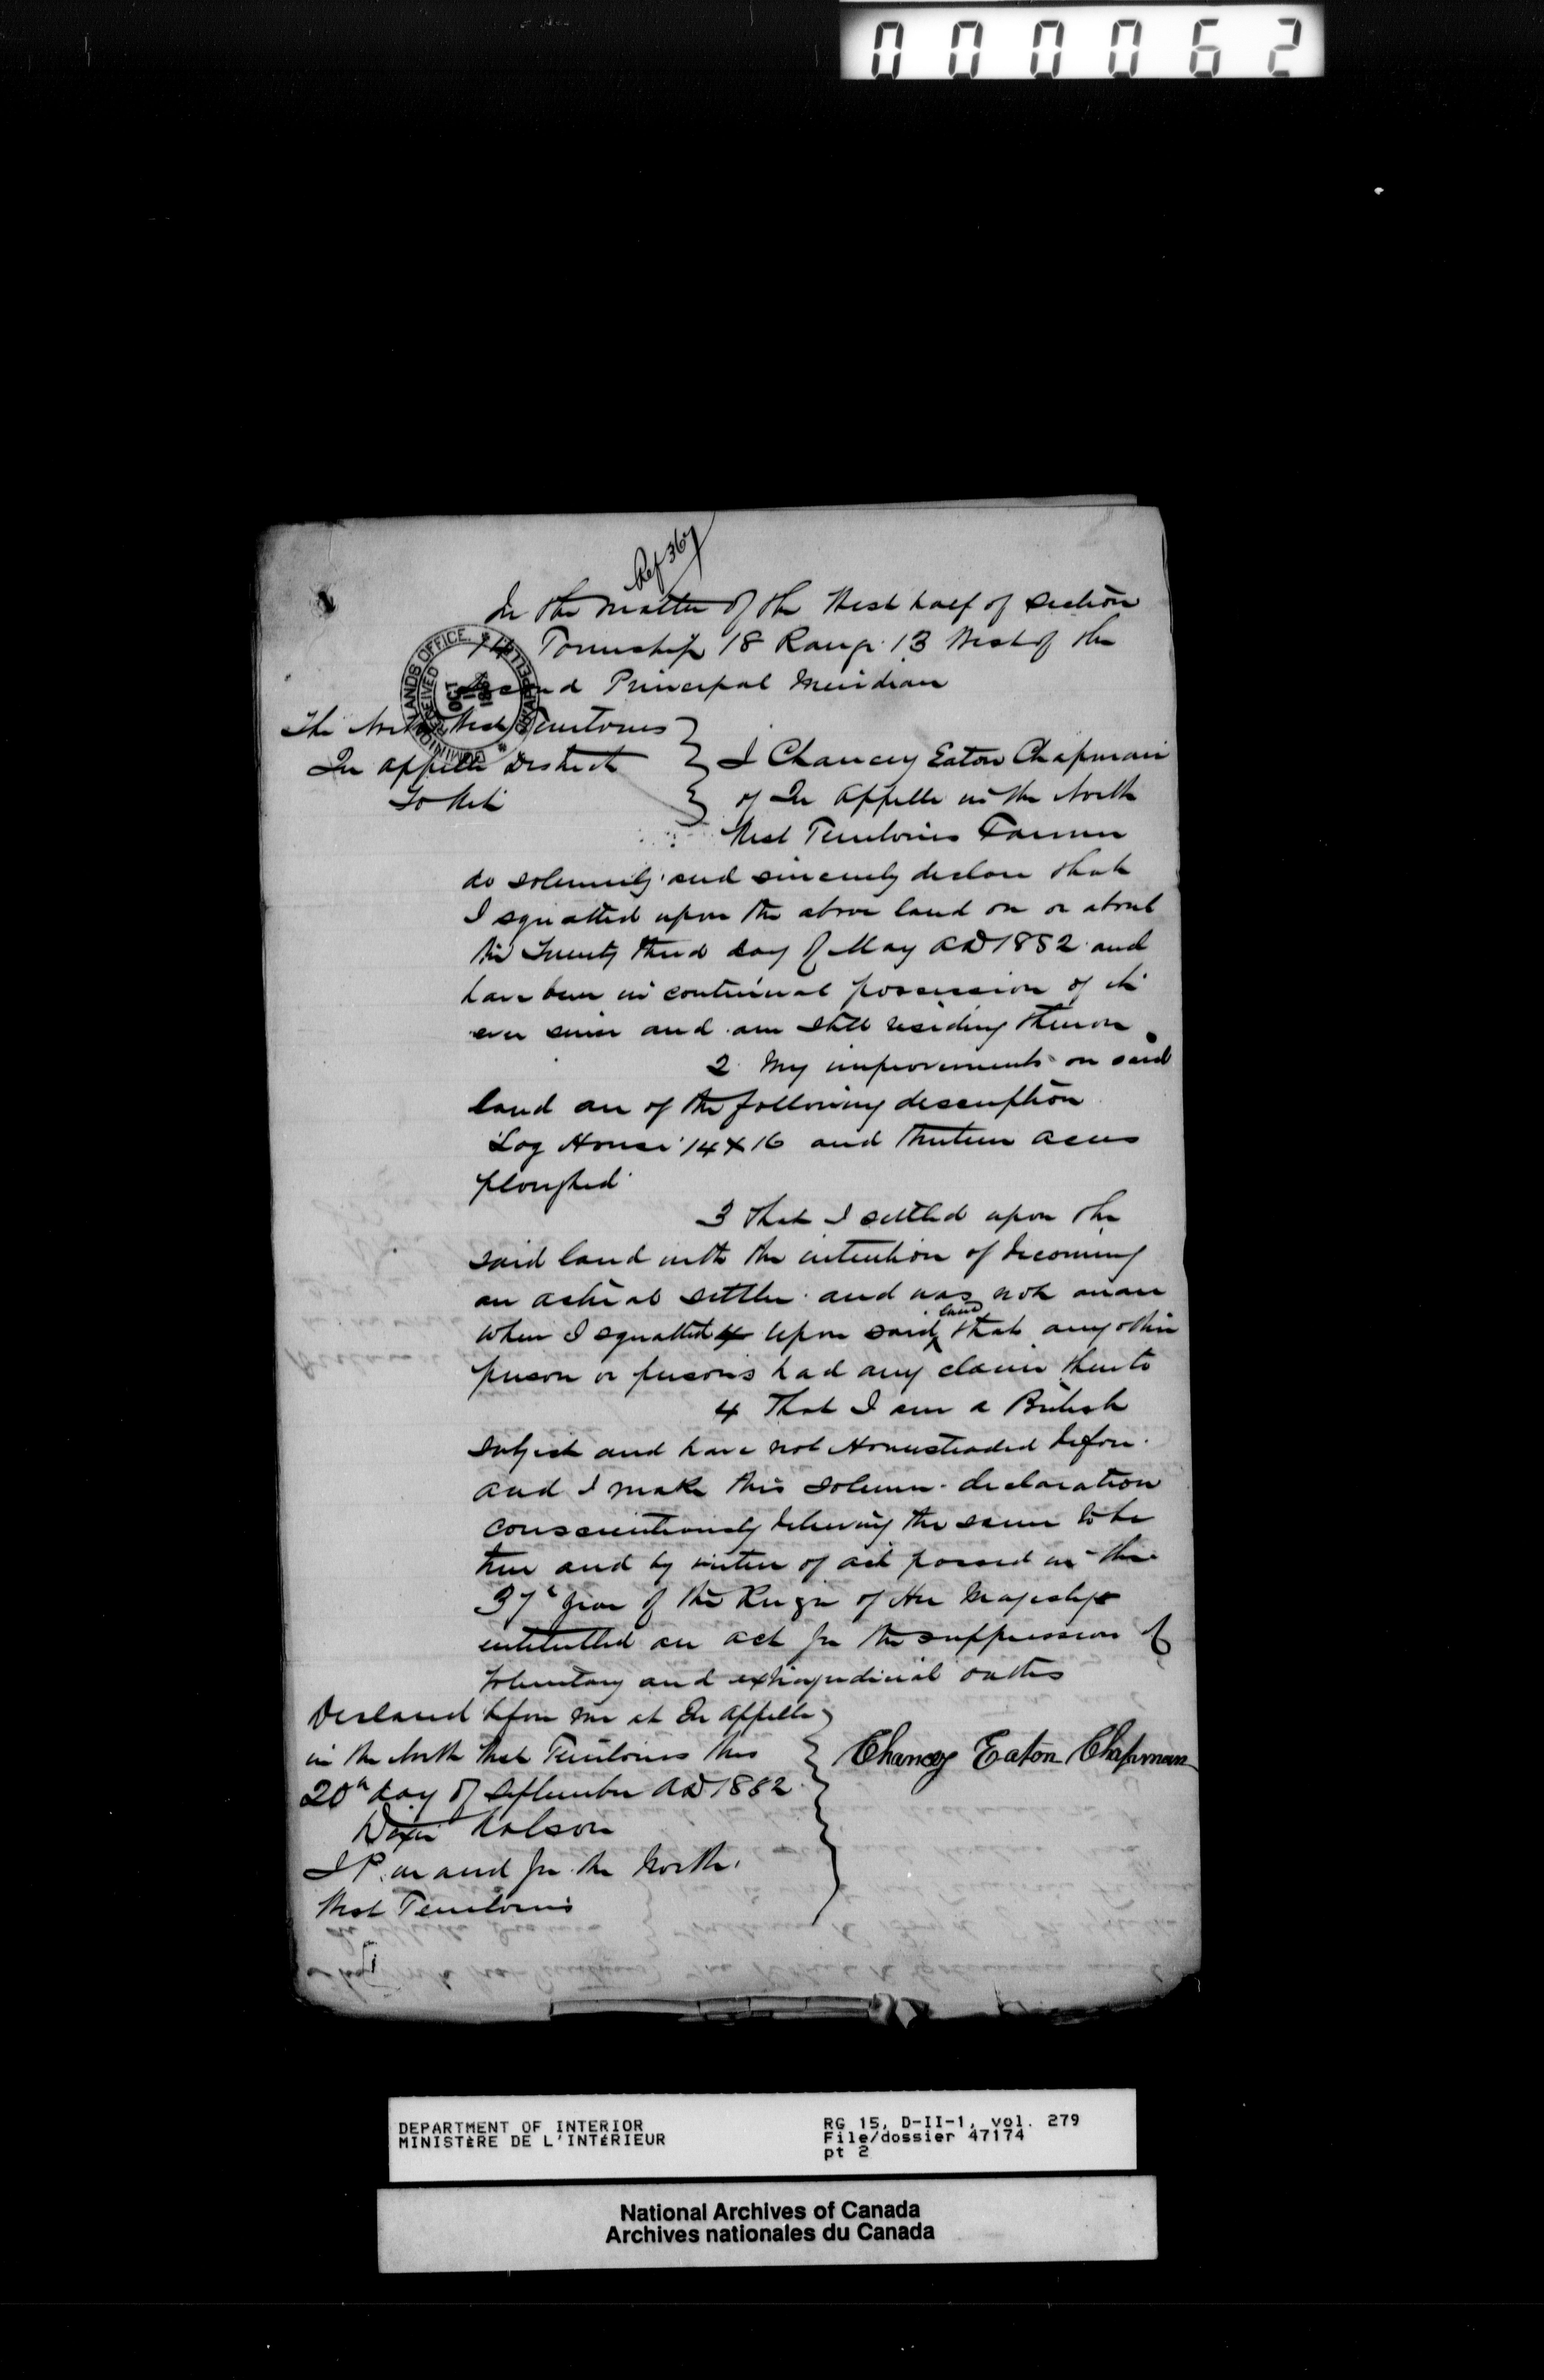 000062
Ref 367
In the matter of the West half of section
14 Township 18 Range 13 West of the
Second Principal Meridian
DOMINION LANDS OFFICE
RECEIVED
OCT
QU'APPELLE
The North West Territories
Qu Appelle District
To Wit
I Chancey Eaton Chapman
of Qu Appelle in the North
West Territories Farmer
do solemnly and sincerely declare that
I squatted upon the above land on or about
the Twenty third day of May AD 1882 and
have been in continual possession of it
ever since and am still residing thereon.
2 My improvements on said
land are of the following description
Log House 14 x 16 and thirteen acres
ploughed
3 That I settled upon the
said land with the intention of becoming
an actual settler and was not aware
when I squatted upon said land that any other
person or persons had any claim thereto
4 That I am a British
subject and have not Homesteaded before.
and I make this solemn declaration
conscientiously believing the same to be
true and by virtue of act passed in the
37th year of the Reign of Her Majesty
entitutled an act for the suppression of
voluntary and extrajudicial oaths
Declared before me at Qu Appelle
in the North West Territories this
20th day of September AD 1882
Chancey Eaton Chapman
J P. in and for the North
West Territories
DEPARTMENT OF INTERIOR
MINISTÈRE DE L'INTÉRIEUR
RG 15, D-II-1, vol. 279
File/dossier 47174
pt 2
National Archives of Canada
Archives nationales du Canada